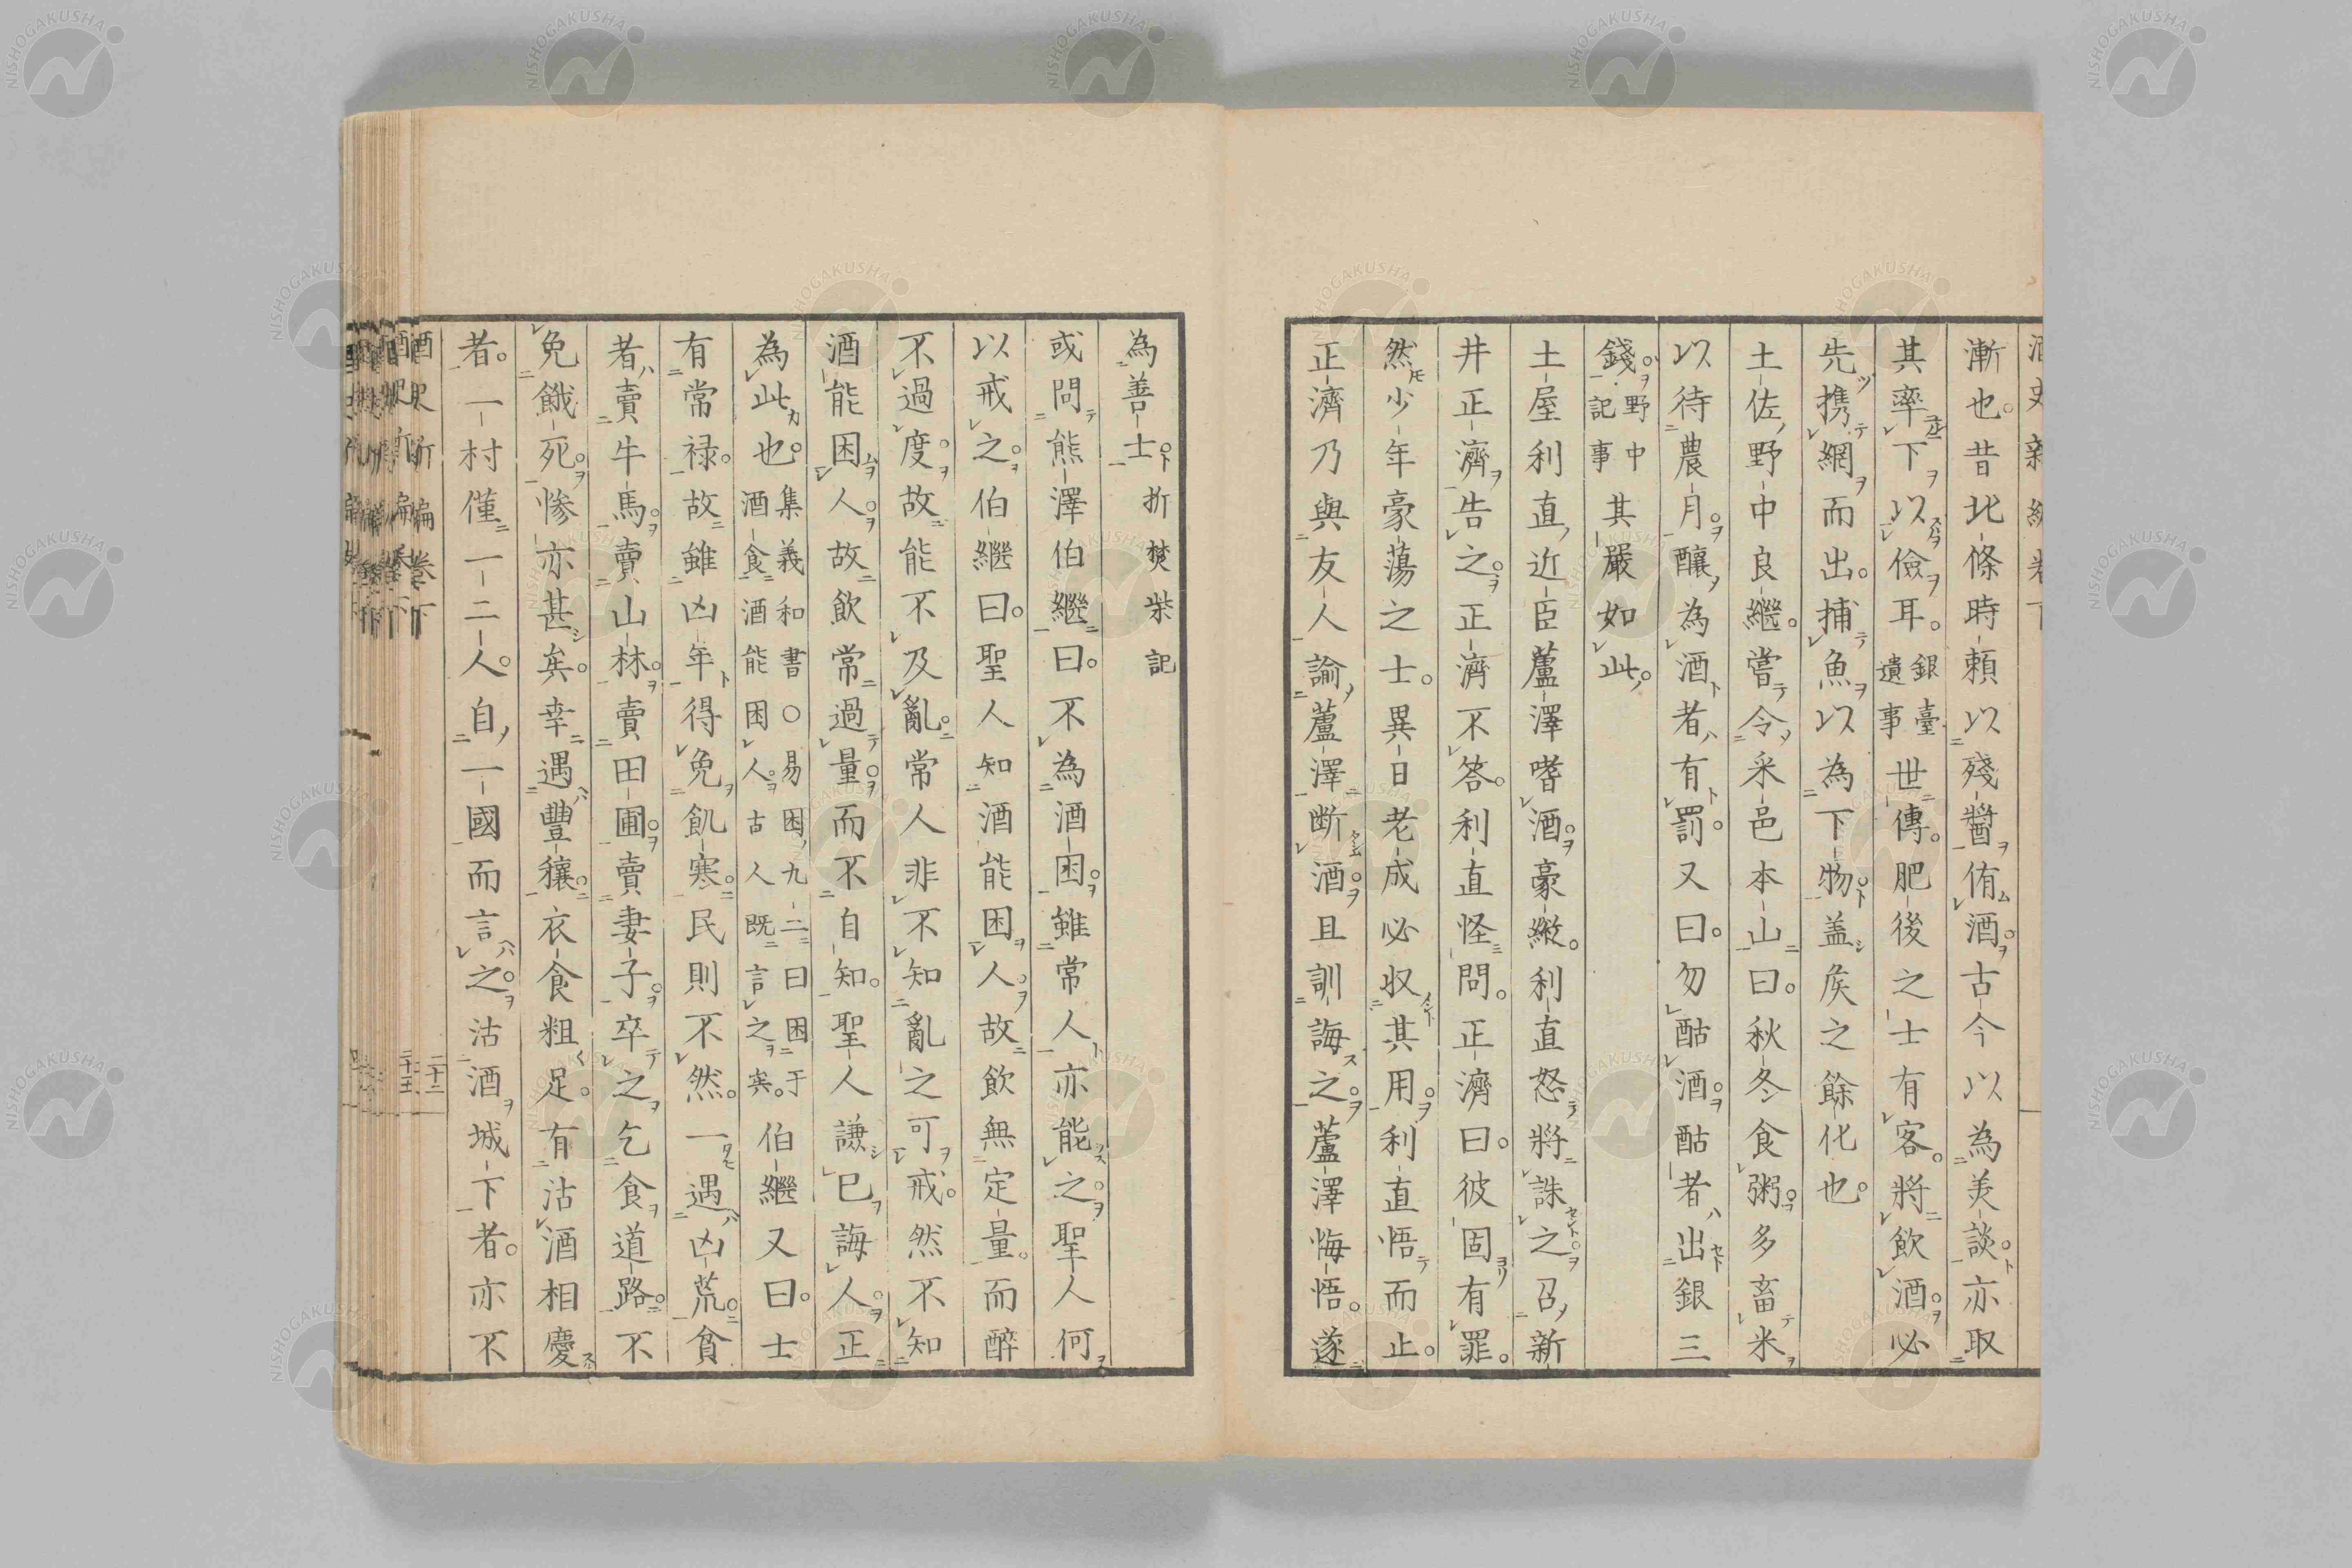 漸也。昔北條時頼以殘醬侑酒。古今以為美談。亦取
其率下以儉耳。銀臺遺事世傳。肥後之士有客。將飲酒。必
先携網而出。捕魚以為下物。盖矦之餘化也。
土佐野中良繼。嘗令采邑本山曰。秋冬食粥。多畜米
以待農月。釀為酒者有罰。又曰。勿酤酒。酤者出銀三
錢。野中記事其嚴如此。
土屋利直近臣蘆澤嗜酒。豪縱。利直怒將誅之。召新
井正濟告之。正濟不答。利直怪問。正濟曰。彼固有罪。
然少年豪蕩之士。異日老成必収其用。利直悟而止。
正濟乃與友人諭蘆澤断酒。且訓誨之。蘆澤悔悟。遂
為善士。折焚柴記
或問熊澤伯繼曰。不為酒困。雖常人亦能之。聖人何
以戒之。伯繼曰。聖人知酒能困人。故飲無定量。而醉
不過度。故能不及亂。常人非不知亂之可戒。然不知
酒能困人。故飲常過量。而不自知。聖人謙已誨人。正
為此也。集義和書○易困九二曰困于酒食酒能困人。古人既言之矣。伯繼又曰。士
有常禄。故雖凶年得免飢寒。民則不然。一遇凶荒。貧
者賣牛馬。賣山林。賣田圃。賣妻子。卒之乞食道路。不
免餓死。惨亦甚矣。幸遇豐穰。衣食粗足。有沽酒相慶
者。一村僅一二人。自一國而言之。沽酒城下者。亦不